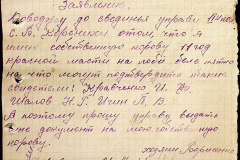 Заявление.
Довожу до сведенья управы
С. В. Коровники о том, что я
имею собственную корову 11 год
красной масти на лобе бело пятно
на что могут подтвердить такие
свидетели: Кравченко И. Ю.
Шалов Н. Г. Ищин П. В.
А поэтому прошу управу выдать
мне документ на мою собственную
корову.